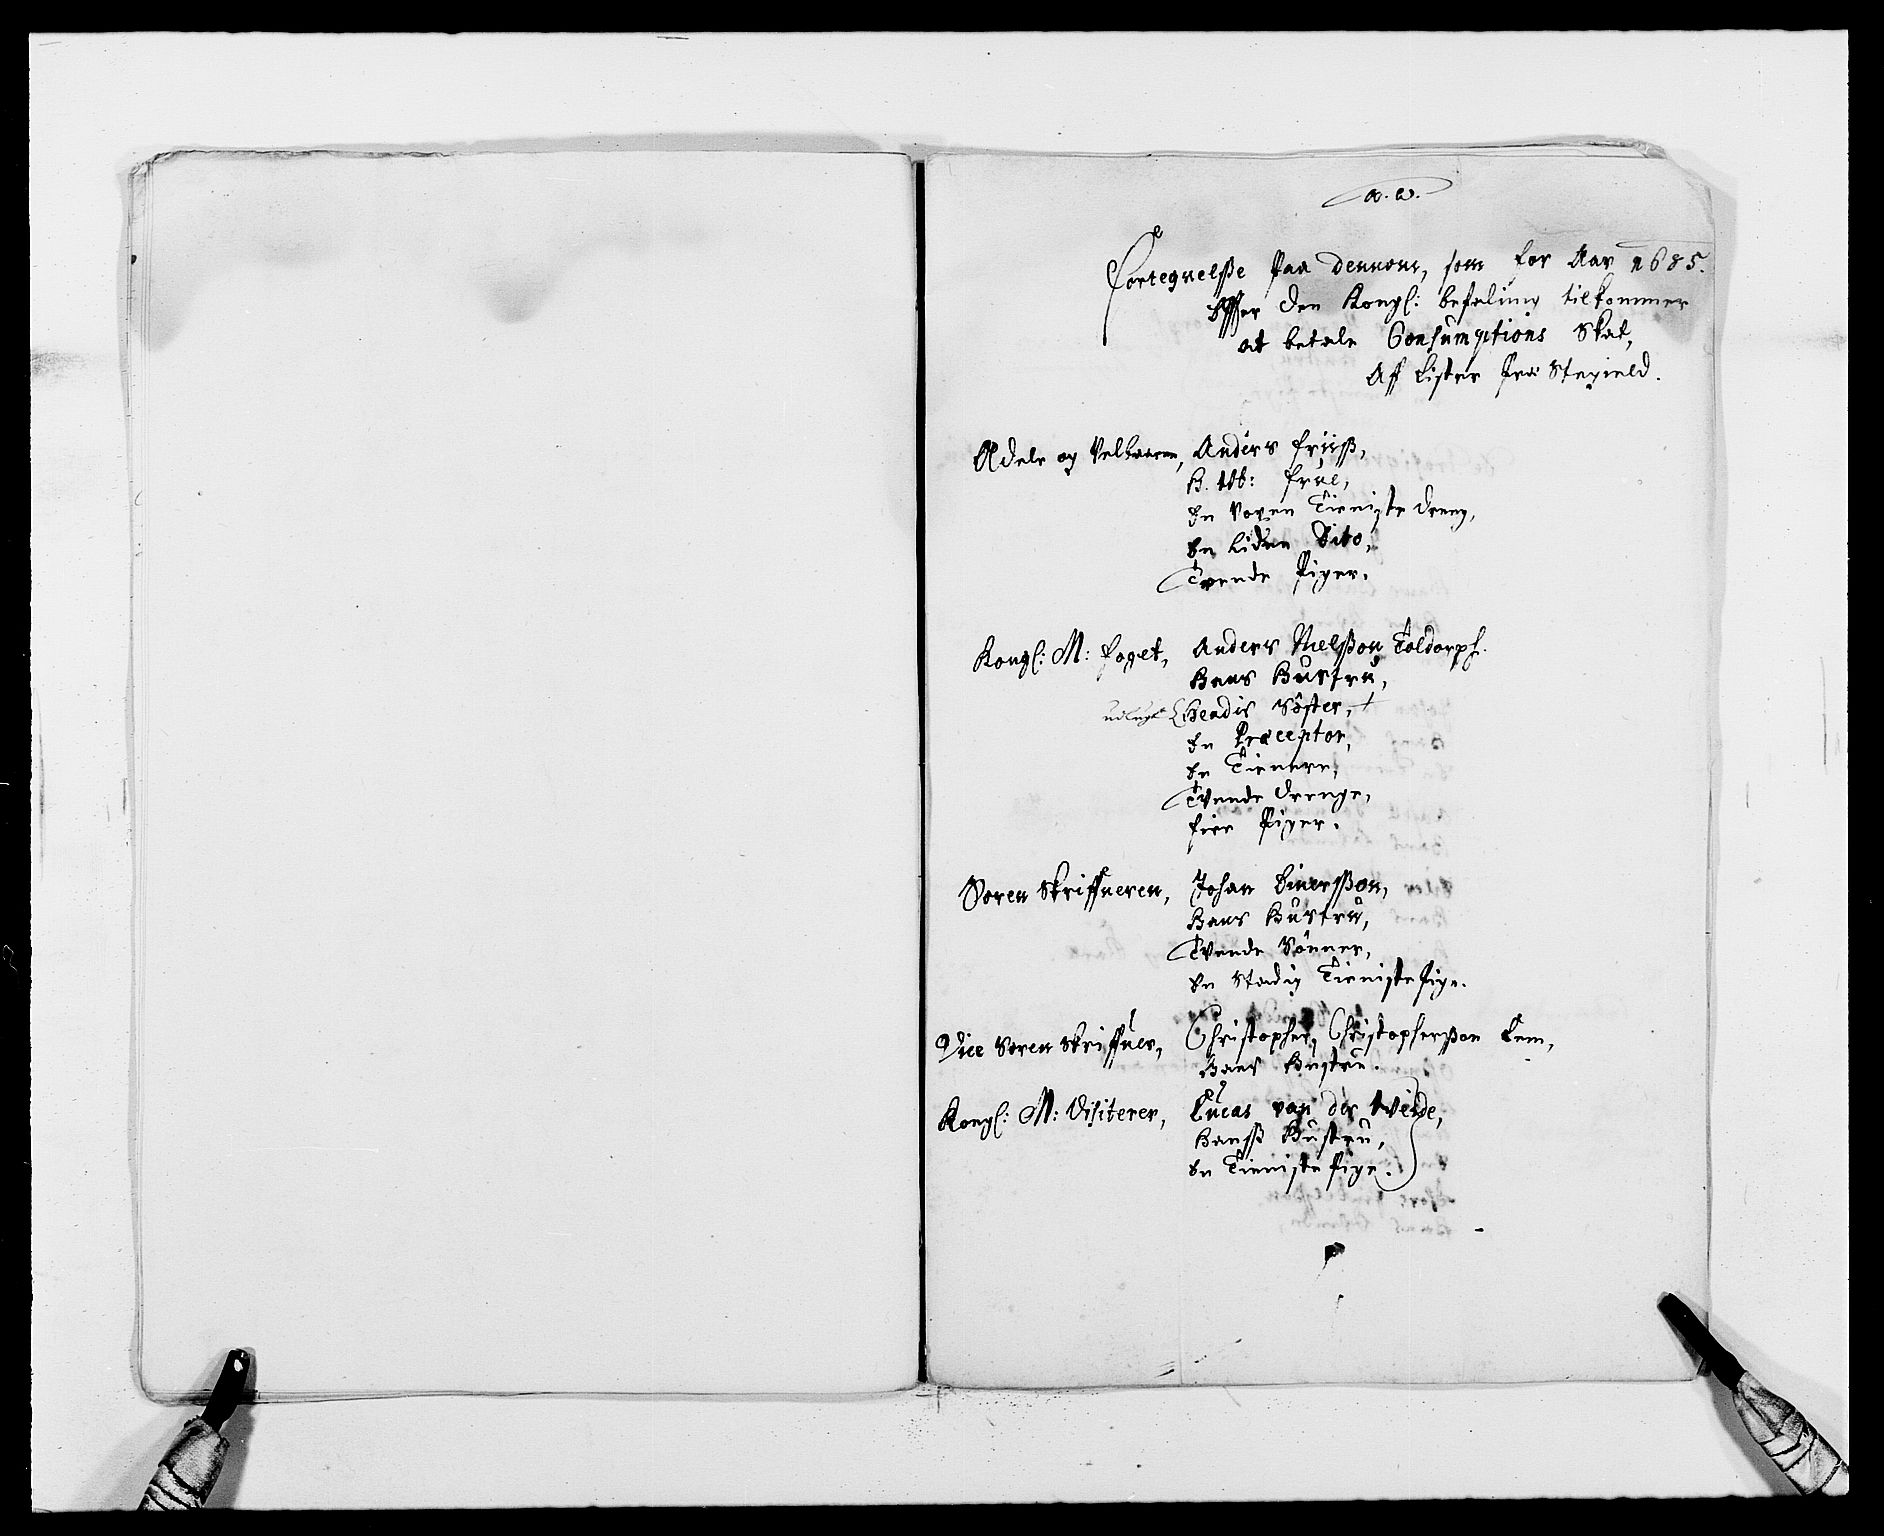 Fortegnelsse Paa dennom, som for Aar 1685.
Effter den Kongl: befaling tilkommer
at betale Consumptions Skat,
Aff Lister
Adele og Velbaarne, Anders friiss,
H. Wb: frue,
En voxen Tieniste dreng,
En liden Dito,
Tvende Piger.
Kongl: M: foget, Anders Nielsson Toldorph.
Hans Hustru,
udlagt Hendis Söster,
En Præceptor,
En Tienere,
Tvende drenge,
fire Piger.
Soren Skriffueren, Johan Einersson,
Hans Hustru,
Tvende Sönner,
En Stadig Tieniste Pige.
Vice Soren Skriffuer, Christopher Christophersson Lem,
Hans Hustru.
Kongl: M: Visiterer, Lucas van der Weide,
Hanss Hustru,
En Tieniste Pige.